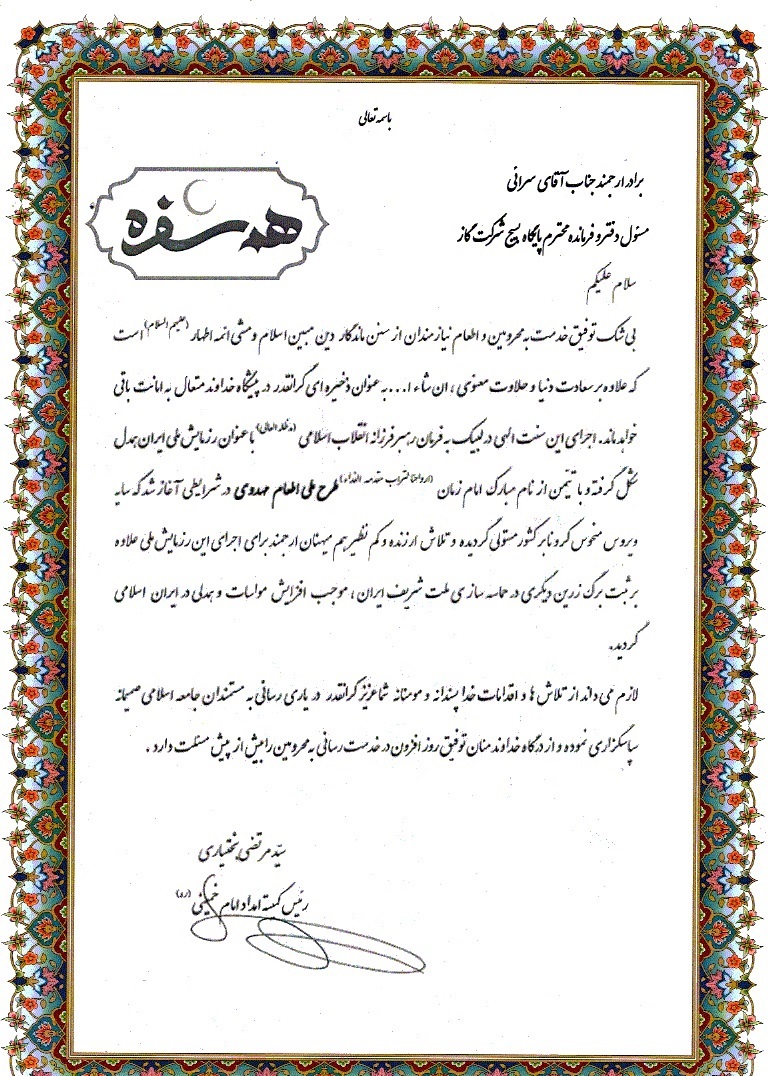 باسمه تعالی
برادر ارجمند جناب آقای سرانی
هم سفره
مسئول دفتر و فرمانده محترم پایگاه بسیج شرکت گاز
سلام علیکم
بی شک توفیق خدمت به محرومین و اطعام نیازمندان از سنن ماندگار دین مبین اسلام و مشی ائمه اطهار (علیهم السلام) است
که علاوه بر سعادت دنیا و حلاوت معنوی ، ان شاء ا... به عنوان ذخیره ای گرانقدر در پیشگاه خداوند متعال به امانت باقی
خواهد ماند. اجرای این سنت الهی در لبیک به فرمان رهبر فرزانه انقلاب اسلامی (مدظله العالی) با عنوان رزمایش ملی ایران همدل
شکل گرفته و با تیمّن از نام مبارک امام زمان (ارواحنا لتراب مقدمه الفداء) طرح ملی اطعام مهدوی در شرایطی آغاز شد که سایه
ویروس منحوس کرونا بر کشور مستولی گردیده و تلاش ارزنده و کم نظیر هم میهنان ارجمند برای اجرای این رزمایش ملی علاوه
بر ثبت برگ زرین دیگری در حماسه سازی ملت شریف ایران ، موجب افزایش مواسات و همدلی در ایران اسلامی
گردید.
لازم می داند از تلاش ها و اقدامات خدا پسندانه و مومنانه شما عزیز گرانقدر در یاری رسانی به مستمندان جامعه اسلامی صمیمانه
سپاسگزاری نموده و از درگاه خداوند منان توفیق روز افزون در خدمت رسانی به محرومین را بیش از پیش مسئلت دارد .
سیّد مرتضی بختیاری
رئیس کمیته امداد امام خمینی (ره)